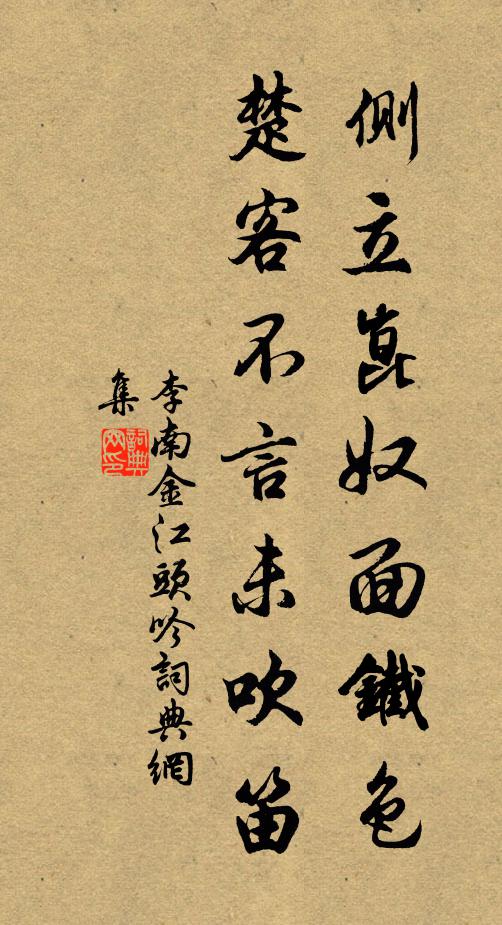 側立崑奴面鐵色
楚客不言未吹笛
李南金江頭吟詞典網
集
詞典網印